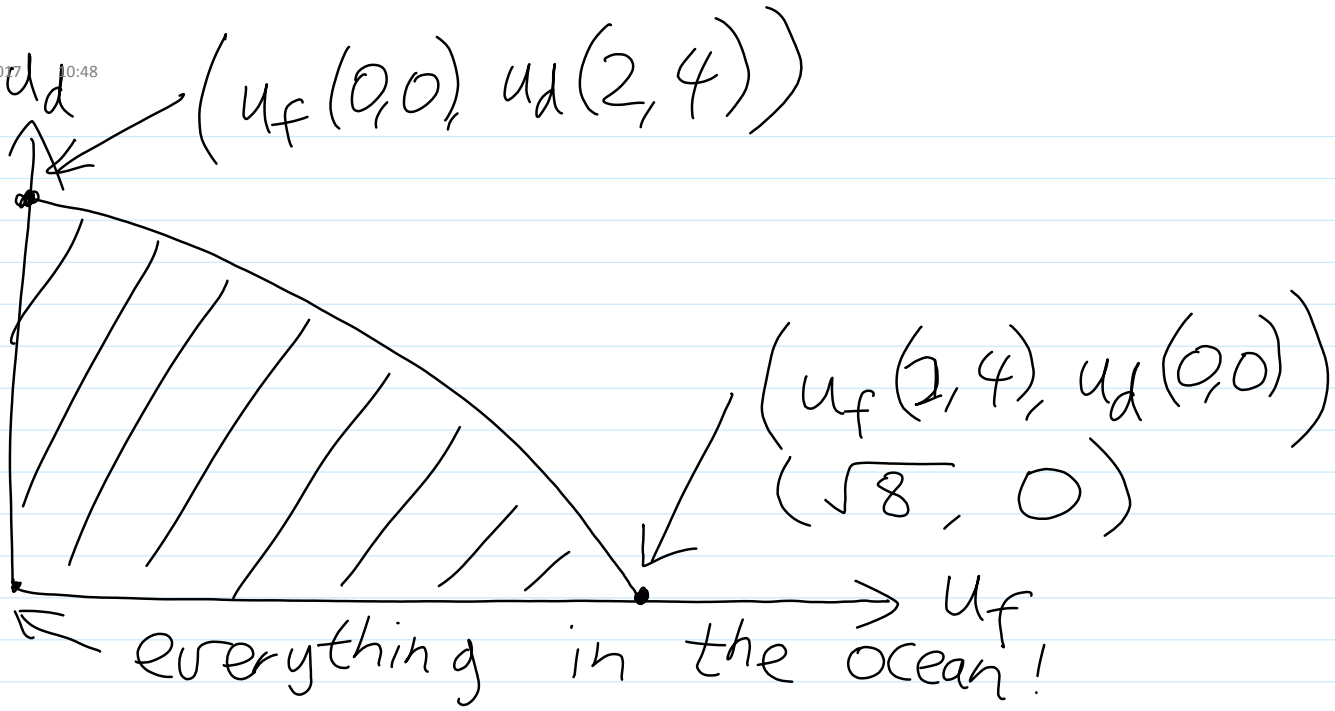 017 10:48
u_d
(u_f(0,0), u_d(2,4))
(u_f(2,4), u_d(0,0))
(√8, 0)
u_f
everything in the ocean!